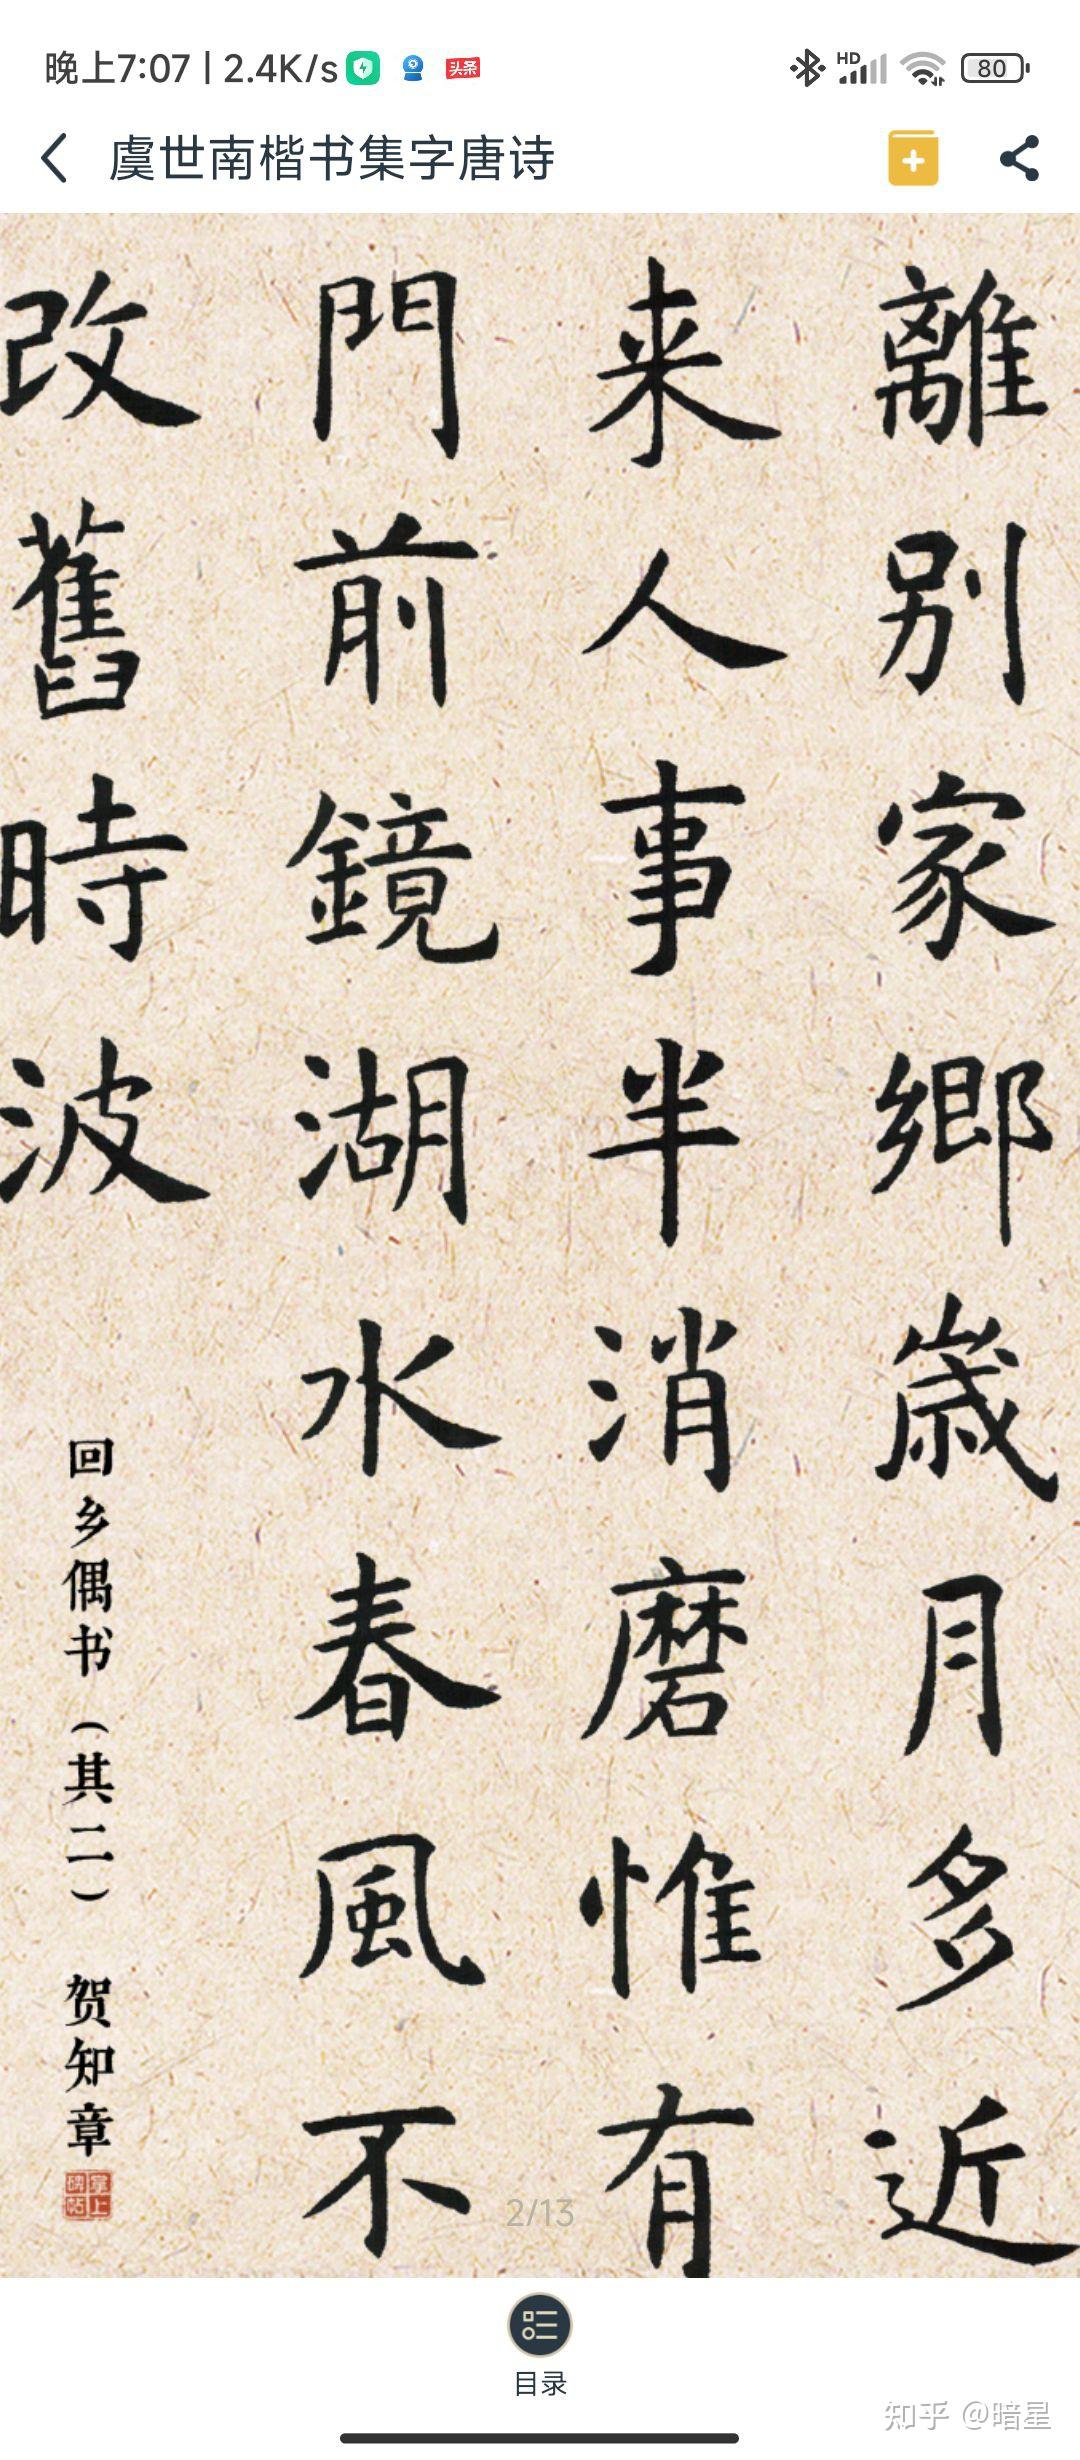 晚上7:07 | 2.4K/s 头条 HD 80
虞世南楷书集字唐诗
離别家鄉歳月多近
来人事半消磨惟有
門前鏡湖水春風不
改舊時波
回乡偶书（其二） 贺知章
掌上碑帖
2/13
目录
知乎 @暗星